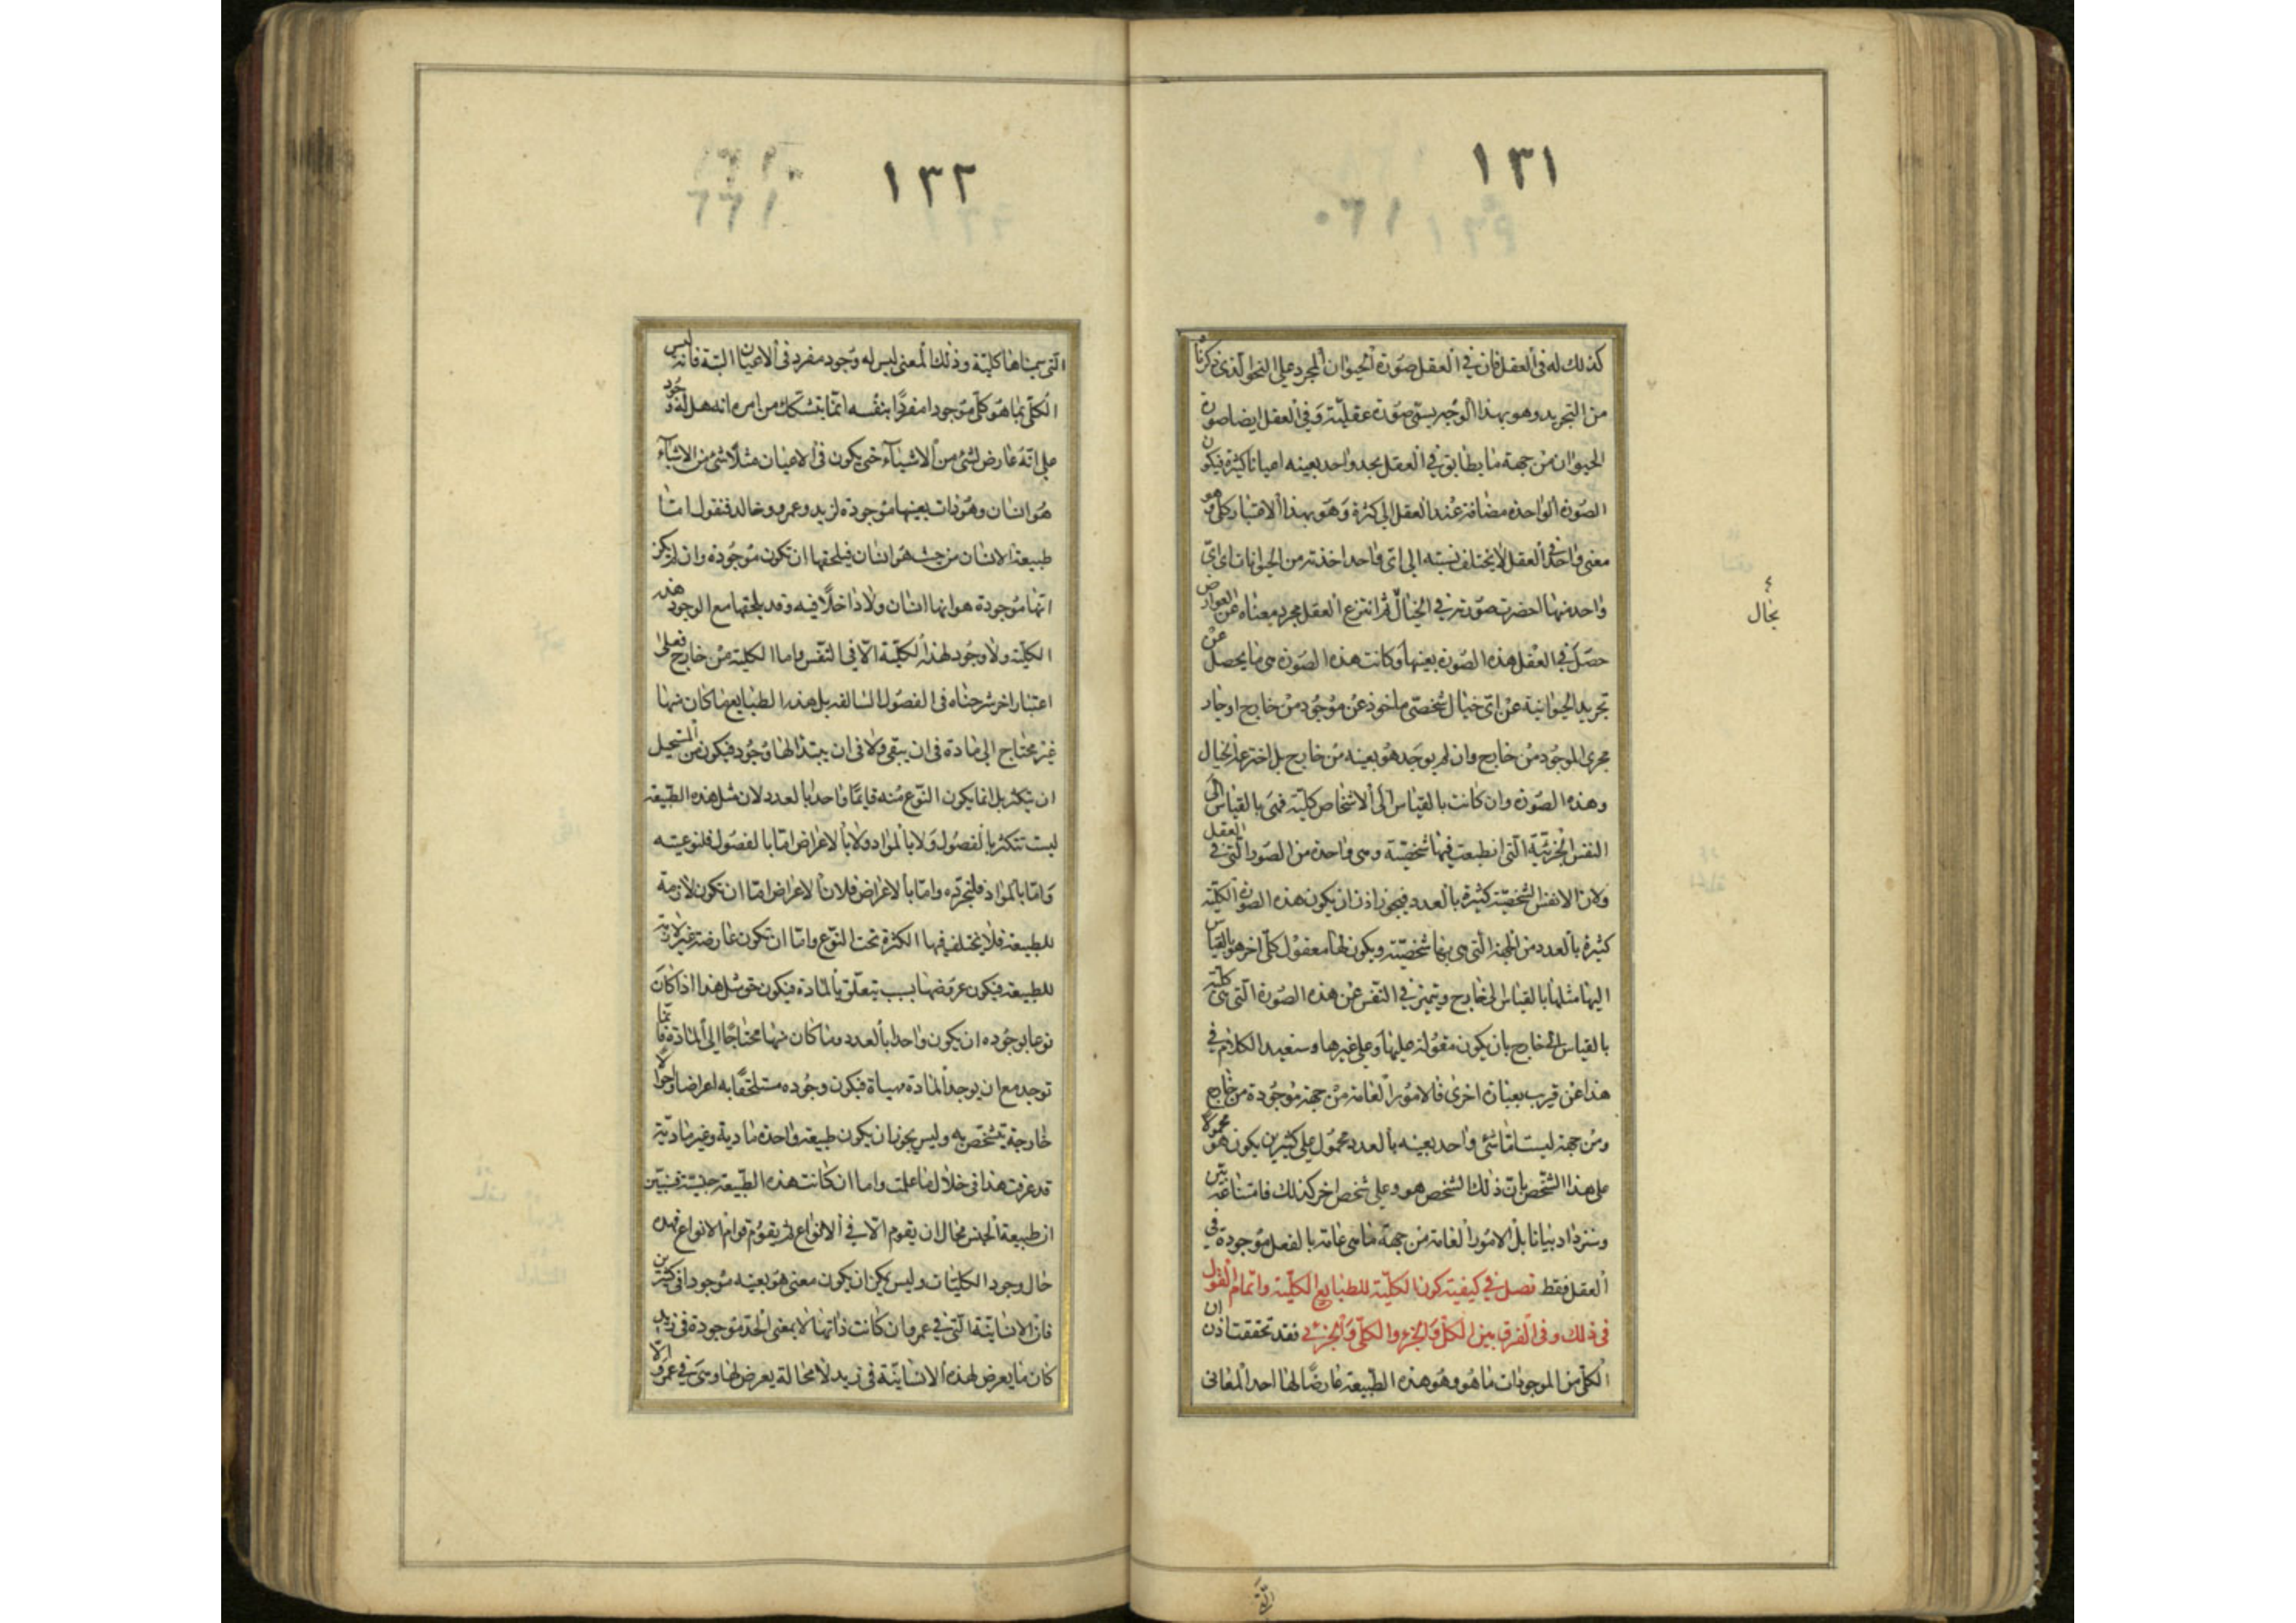 ١٣١
كذلك له فى العقل فان في العقل صورة الحيوان المجرد على النحو الذى ذكرنا
من التجريد وهو بهذا الوجه يسمى صورة عقلية وفي العقل ايضا صورة
الحيوان من جهة ما يطابق في العقل بحد واحد بعينه اعيانا كثيرة فيكون
الصورة الواحدة مضافة عند العقل الى كثرة وهو بهذا الاعتبار كلى وهو
معنى واحد في العقل لا يختلف نسبته الى اى واحد اخذته من الحيوانات اى اى
واحد منها احضرت صورته في الخيال ثم انتزع العقل مجرد معناه عن العوارض
بحال
حصل في العقل هذه الصورة بعينها وكانت هذه الصورة هى ما يحصل عن
تجريد الحيوانية عن اى خيال شخصى ماخوذ عن موجود من خارج او جار
مجرى الموجود من خارج وان لم يوجد هو بعينه من خارج بل اخترعه الخيال
وهذه الصورة وان كانت بالقياس الى الاشخاص كلية فهى بالقياس الى
النفس الجزئية التى انطبعت فيها شخصية وهى واحدة من الصور التى في العقل
ولان الانفس الشخصية كثيرة بالعدد فيجوز اذن ان يكون هذه الصورة الكلية
كثيرة بالعدد من الجهة التى هى بها شخصية ويكون لها معقول كلى اخر هو بالقياس
اليها مثلها بالقياس الى خارج ويتميز في النفس عن هذه الصورة التى هى كلية
بالقياس الى خارج بان يكون مقولة عليها وعلى غيرها وسنعيد الكلام في
هذا عن قريب بعبارة اخرى فالامور العامة من جهة موجودة من خارج
ومن جهة ليست اما شئ واحد بعينه بالعدد محمول على كثيرين يكون هو محمولا
على هذا الشخص بان ذلك الشخص هو وعلى شخص اخر كذلك فامتناعه بين
وسنزداد بيانا بل الامور العامة من جهة ما هى عامة بالفعل موجودة في
العقل فقط فصل في كيفية كون الكلية للطبايع الكلية واتمام القول
فى ذلك وفى الفرق بين الكل والجزء والكلى والجزئى فقد تحققت اذن ان
الكلى من الموجودات ما هو وهو هذه الطبيعة عارضا لها احد المعانى
١٣٢
التى سميناها كلية وذلك المعنى ليس له وجود مفرد فى الاعيان البتة فانه ليس
الكلى بما هو كلى موجودا مفردا بنفسه انما يتشكك من امره انه هل له وجود
على انه عارض لشئ من الاشياء حتى يكون فى الاعيان مثلا شئ من الاشياء
هو انسان وهو ذات بعينها موجودة لزيد وعمرو وخالد فنقول اما
طبيعة الانسان من حيث هو انسان فيلحقها ان تكون موجودة وان لم يكن
انها موجودة هو انها انسان ولا داخلا فيه وقد يلحقها مع الوجود هذه
الكلية ولا وجود لهذه الكلية الا فى النفس واما الكلية من خارج فعلى
اعتبار اخر شرحناه فى الفصول السالفة بل هذه الطبايع ما كان منها
غير محتاج الى مادة فى ان يبقى ولا فى ان يبتدا لها وجود فيكون من المستحيل
ان يتكثر بل انما يكون النوع منه قايما واحدا بالعدد لان مثل هذه الطبيعة
ليست تتكثر بالفصول ولا بالمواد ولا بالاعراض اما بالفصول فلنوعيته
واما بالمواد فلتجرده واما بالاعراض فلان الاعراض اما ان تكون لازمة
للطبيعة فلا يختلف فيها الكثرة تحت النوع واما ان تكون عارضة غير لازمة
للطبيعة فيكون عروضها بسبب تتعلق بالمادة فيكون حق مثل هذا اذا كان
نوعا بوجوده ان يكون واحدا بالعدد وما كان منها محتاجا الى المادة فانما
توجد مع ان يوجد المادة مهياة فيكون وجوده مستلحقا به اعراضا واحوالا
خارجة يتشخص به وليس يجوز ان يكون طبيعة واحدة مادية وغير مادية
قد عرفت هذا فى خلال ما علمت واما ان كانت هذه الطبيعة جنسية فنبين
ان طبيعة الجنس محال ان يقوم الا في الانواع ثم يقوم قوام الانواع فهذه
حال وجود الكليات وليس يمكن ان يكون معنى هو بعينه موجودا فى كثيرين
فان الانسانية التى في عمرو ان كانت ذاتها لا بمعنى الحد موجودة فى زيد
كان ما يعرض لهذه الانسانية فى زيد لا محالة يعرض لها وهى في عمرو الا